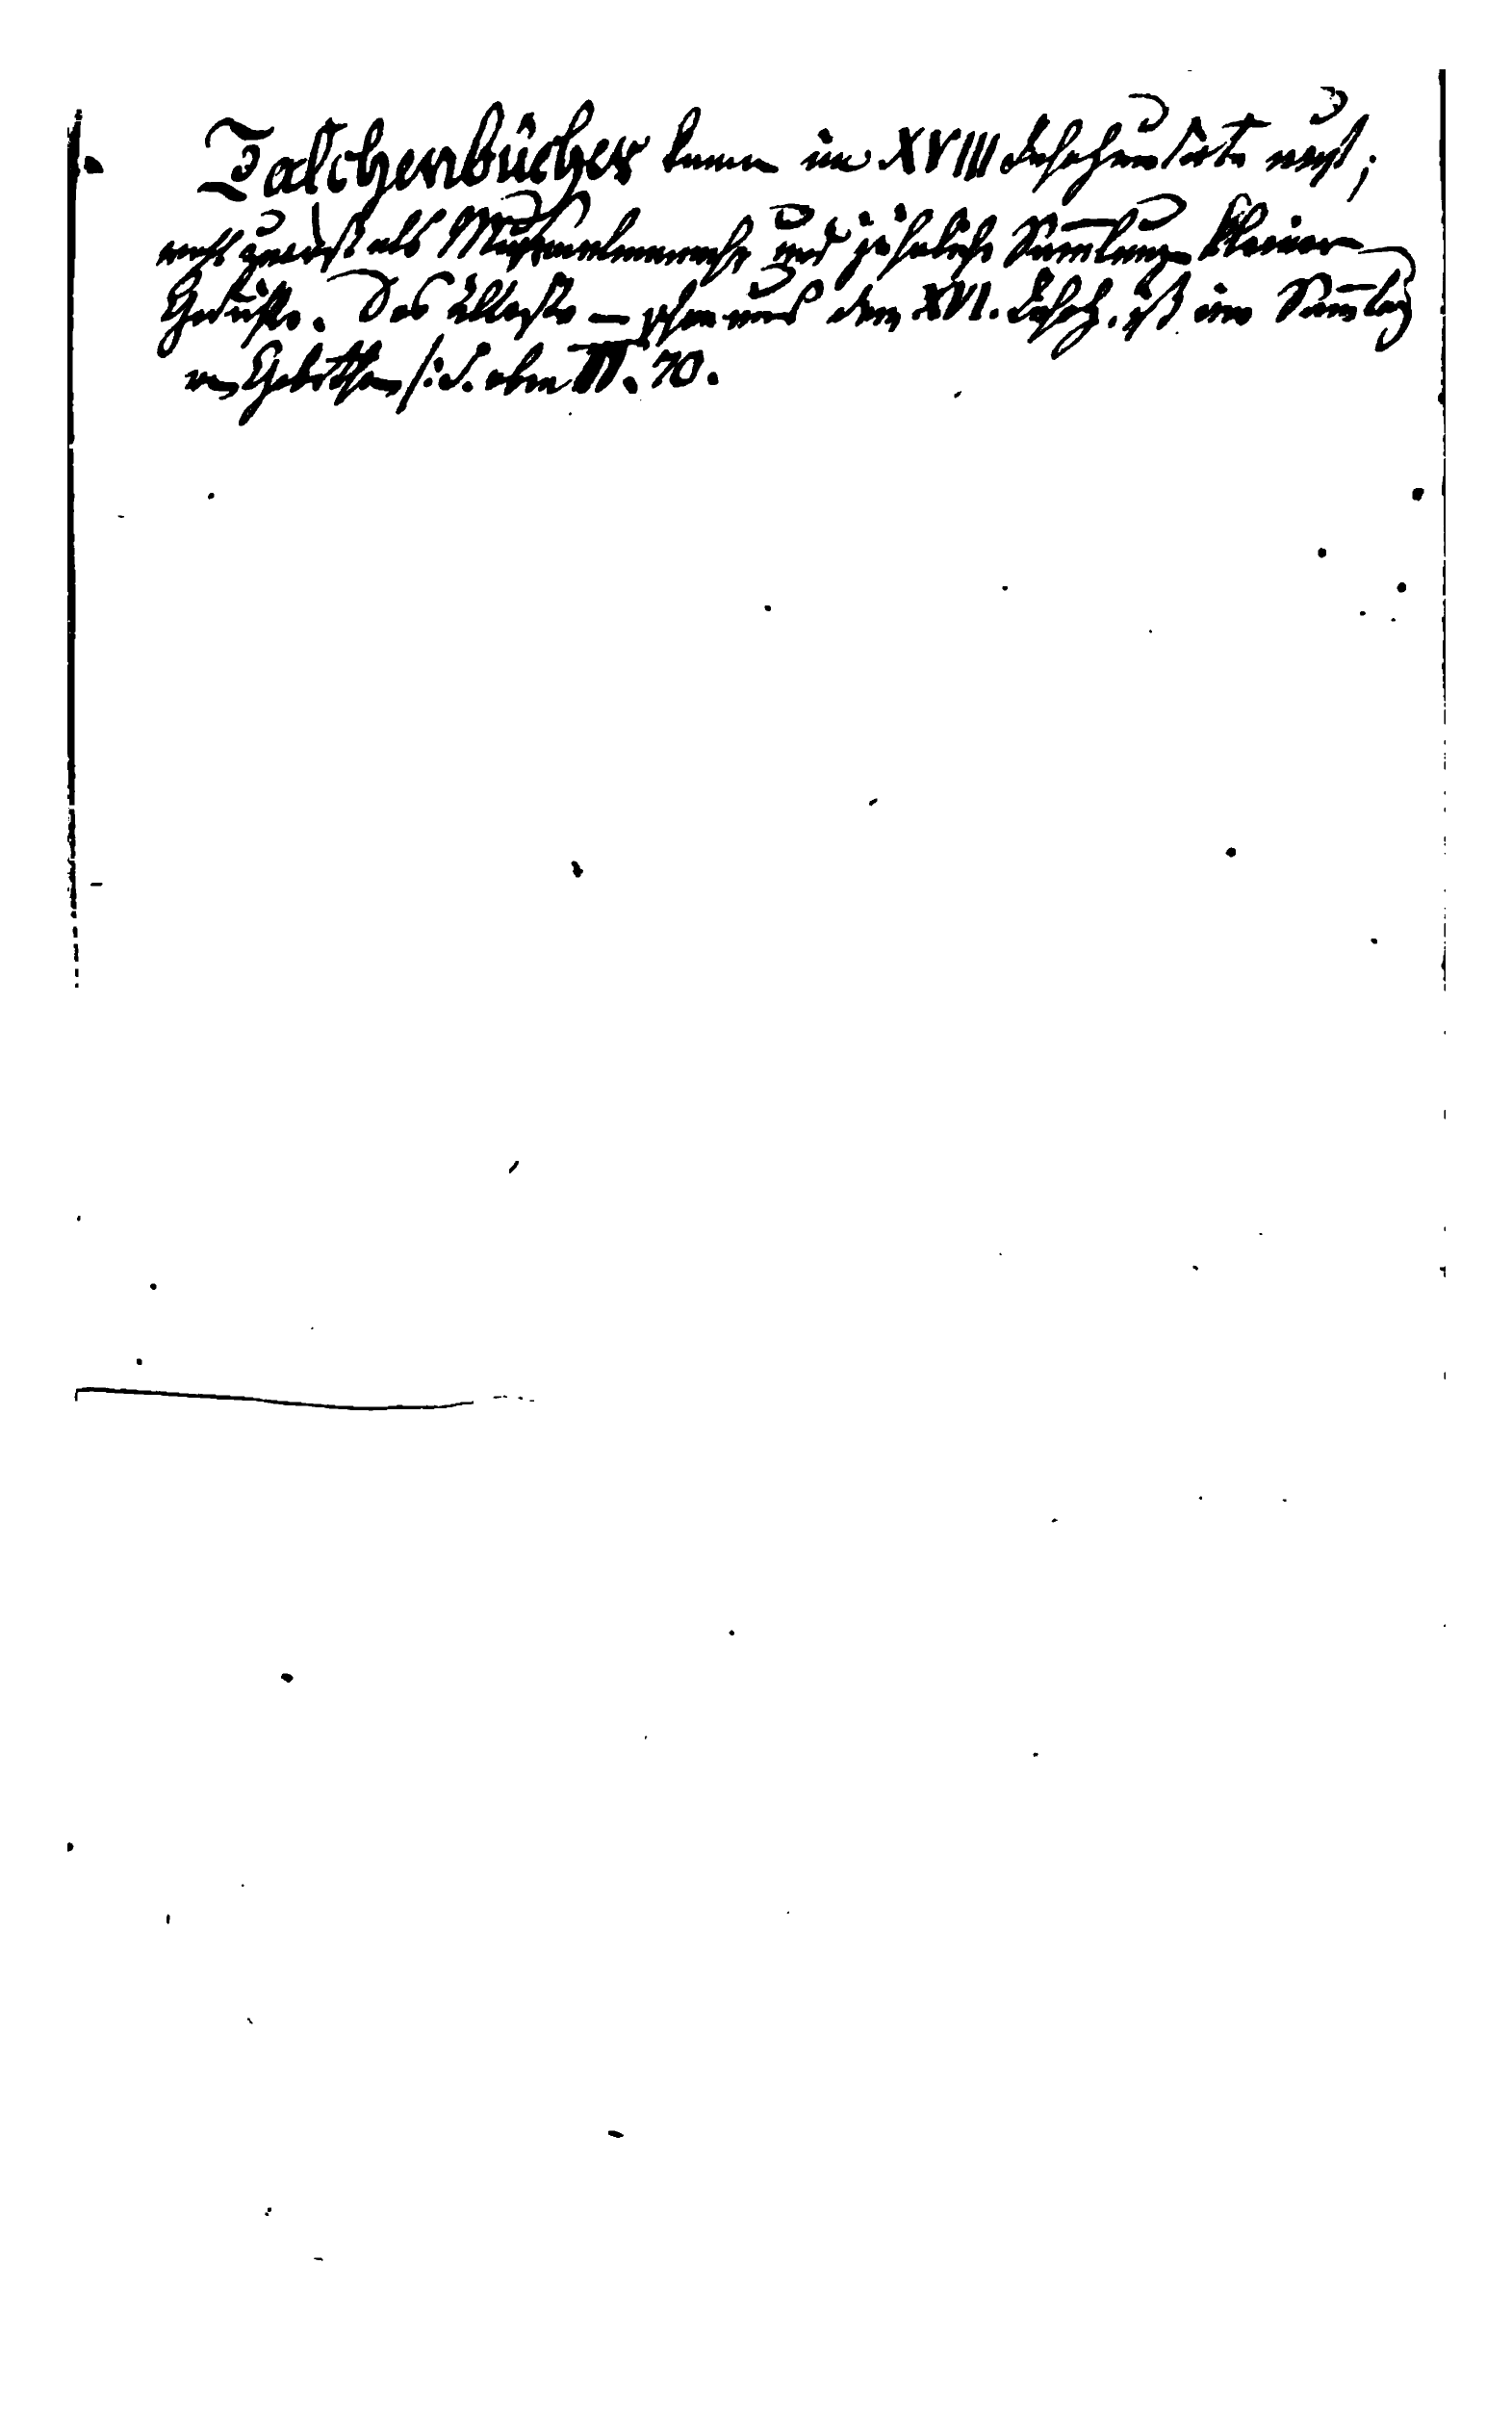 Taschenbücher kamen im XVIII Jahrhunderte auf;
wohl zuerst als Musenalmanache und jährliche Samlungen kleiner
Gedichte. Das älteste — schon aus dem XVI. Jahrh. ist eine Samlung
von Gebethen /: S. oben II. 70.